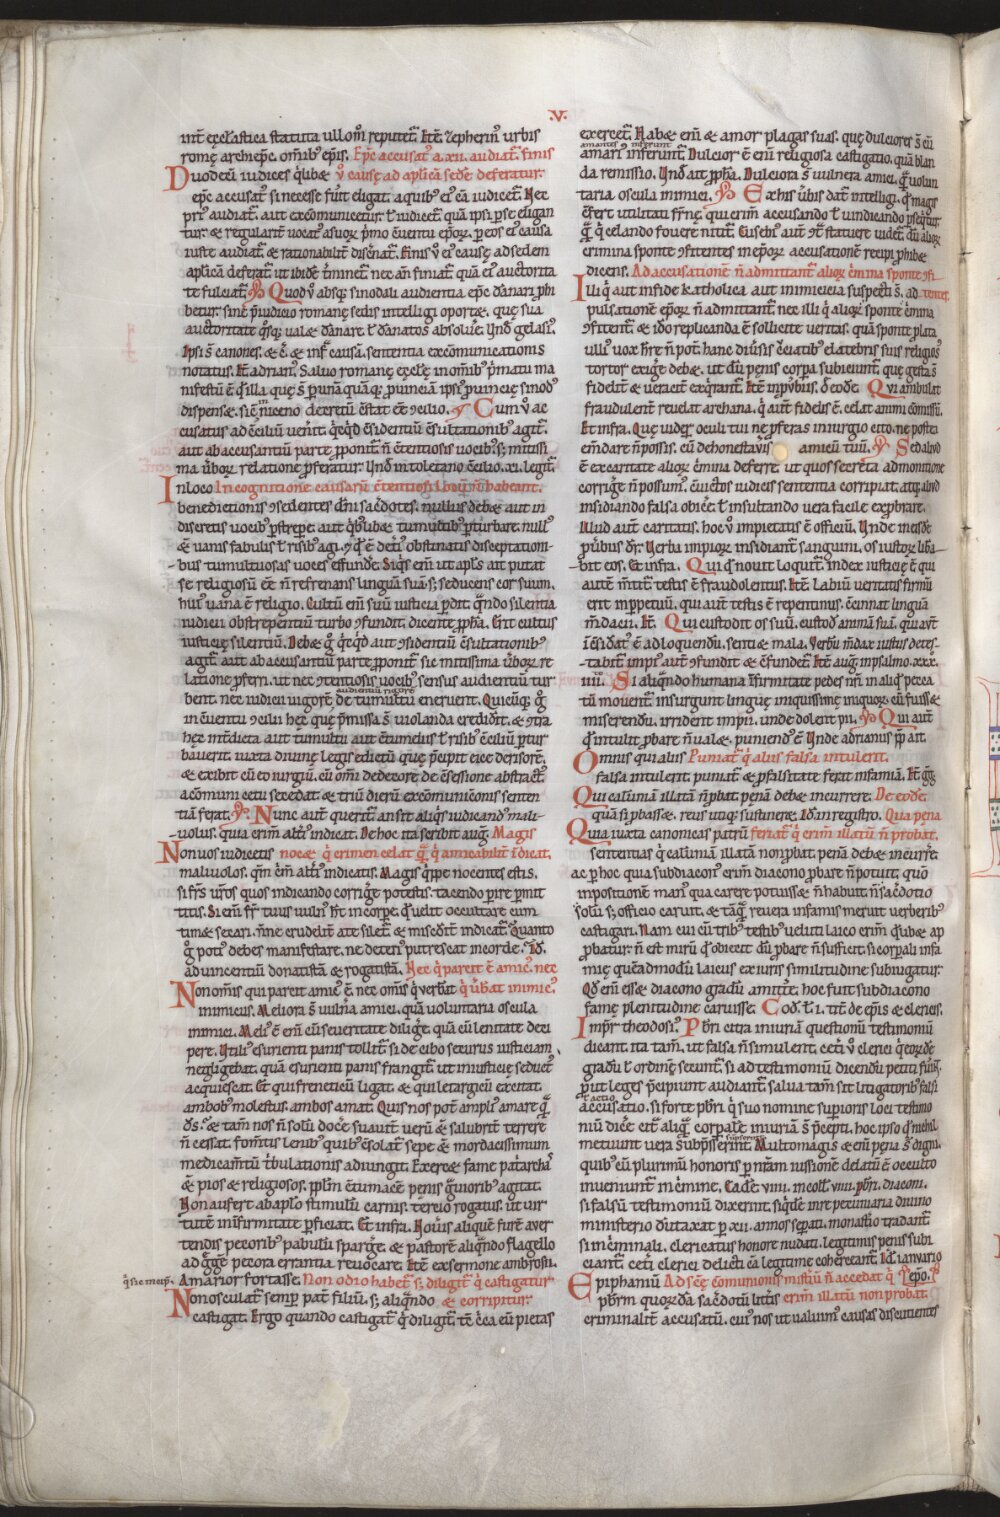 .V.
int̄ ecclastica statuta ullom̊ reputet̄. Itē Zepherin' urbis
romę archiepc̄. om̄ib' ep̄is. Ep̄c accusat' a .xii. audiat̄. finis
Duodeci iudices q̄libet v̊ causę ad aplicā sedē deferatur.
ep̄c accusat' si necesse fuit eligat. a quib' ei' cā iudicet̄. Nec
pri' audiat̄. aut excōmunicetur. ł iudicet̄ quā ipsi p se eligan
tur. & regularit̄ vocat' a suor̄ p̄mo cventu ep̄or̄. p eos ei' causa
iuste audiat̄. & rationabilit̄ disc̄nat̄. Finis v̊ ei' causę ad sedem
aplicā deferat̄. ut ibidē t̄minet̄. nec an̄ finiat̄ quā ei' auctorita
te fulciat̄. Quod v̊ absq; sinodali audientia ep̄c dānari phi
betur. sine p̄iudicio romanę sedis intelligi oportet. que sua
auctoritate q̊sq; valet dānare. ł dānatos absolv̄e. Unđ gelasi'.
Ipsi s̄ canones. & c̄. & inf̄ causā. sententia excōmunicationis
notatus. Itē adrian'. Salvo romanę ecclę in om̄ib' p̄matu ma
nifestū ē q̊ illa quę s̄ p unā quāq; pvinciā ipsi' pvincię sinod'
dispenset. sic in niceno decretū cstat eē 9cilio. Cum v̊ ac
cusatus ad cciliū ven̄it. q̊cq̊d csidentiū csultationib' agit̄.
aut ab accusantiū parte pponit̄. n̄ c̄tentiosis vocib'. s; mitissi
ma v̄bor̄ relatione pferatur. Unđ in toletano ccilio .xi. legit̄.
In loco In cognitione causarū c̄tentiosi hoies n̄ habeant.
benedictionis 9sedentes dn̄i sacđotes. nullus debet aut in
discretis vocib' pstrepe. aut q̊b'libet tumultib' pturbare. null'
& vanis fabulis ł risib' agi. 9 q̊ ē deti' obstinatis disceptationi-
bus tumultuosas voces effunde. Siq̊s eni ut apl's ait putat
se religiosū eē n̄ refrenans linguā suā. s; seducens cor suum.
hui' vana ē religio. Cultū eni suū iusticia pdit. quando silentia
iudicii obstrepentiū turbo 9fundit. dicente ppha. Erit cultus
iusticię silentiū. Debet g̊ q̊cq̊d aut 9sidentiū csultationib'
agit̄. aut ab accusantiū parte pponit̄. sic mitissima v̄bor̄ re
latione pferri. ut nec 9tentiosis vocib' sensus audientiū tur
bent. nec iudicii vigorē de tumultu enervent. Quicūq; g̊
audientiū vigorē
in cventu 9cilii hęc quę p̄missa s̄ violanda credidit̄. & 9tra
hęc int̄dicta aut tumultu aut c̄tumeliis ł risib' cciliū ptur
baverit. iuxta divinę legis edictū quo p̄cipit̄ eice derisorē.
& exibit cū eo iurgiū. cū omi dedecore de csessione abstract'
a cōmuni cetu secedat. & triū dierū excōmunic̄onis senten
tiā ferat. Nunc aut̄ querit̄ an sit aliq̊s iudicand' mali-
volus. quia crim̄ alti' indicat. De hoc ita scribit aug'. Magis
Non vos iudicetis nocet q̊ crimen celat quā q̊ amicabilit̄ īdicat.
malivolos. qm̄ crim̄ alti' indicatis. Magis q̊ppe nocentes estis.
si frs̄ vr̄os quos indicando corrig̊e potestis. tacendo pire pmit
titis. Si eni fr̄ tuus vuln' ht̄ in corpe. q̊ velit occultare cum
timet secari. nōne crudelit̄ abs te silet̄. & miscđit̄ indicat̄. Quanto
g̊ poti' debes manifestare. ne deteri' putrescat in corde. Id.
ad vincentiū donatistā. & rogatistā. Nec q̊ parcit ē amic'. nec
Non om̄is qui parcit amic' ē. nec om̄is q̊ verbat q̊ v̄bat inimic'.
inimicus. Meliora s̄ vuln̄a amici. quā voluntaria oscula
inimici. Meli' ē cū severitate dilig̊e. quā cū lenitate deci
pere. Utili' esurienti panis tollit̄. si de cibo securus iusticiam
negligebat. quā esurienti panis frangit̄. ut iniusticię seduct'
acquiescat. Et qui freneticū ligat. & qui letargicū excitat.
ambob' molestus. ambos amat. Quis nos pot̄ ampli' amare quā
đs. & tam nos n̄ solū docē suavit̄ verū & salubrit̄ terrere
n̄ cessat. Fom̄tis lenib' quib' csolat̄ sepe & mordacissimum
medicam̄tū tribulationis adiungit. Exercet fame pat̄archā
& pios & religiosos. pplm̄ c̄tumacē penis gviorib' agitat.
Non aufert ab aplo stimulū carnis. tercio rogatus. ut vir
tutē in firmitate pficiat. Et infra. Novi' aliquē furē aver
tendis pecorib' pabulū sparg̊e. & pastorē aliqndo flagello
ad g̊g̊e pecora errantia revocare. Itē ex sermone ambrosii.
q̊ sic incip. Amarior fortasse. Non odio habet̄ s; diligit̄ q̊ castigatur
Non osculat̄ semp pat̄ filiū. s; aliqndo & corripitur.
castigat. Ergo quando castigat̄ q̊ diligit̄. tē c̄ca eū pietas
exercet̄. Habet eni & amor plagas suas. quę dulciores s̄ cū
amari' inferunt̄. Dulcior ē eni religiosa castigatio. quā blan
amantes inferunt
da remissio. Unđ ait ppha. Dulciora s̄ vulnera amici. quā volun
taria oscula inimici. Ex his v̄bis dat̄ intelligi. q̊ magis
c̄fert utilitati fr̄nę. qui crim̄ accusando ł vindicando psequitur.
quā q̊ celando fovere nitit̄. Eusebi' aut̄ 9t̄ statuere videt̄. dū alior̄
crimina sponte 9fitentes in ep̄or̄ accusationē recipi phibet
dicens. Ad accusationē n̄ admittant̄ alior̄ c̄mina sponte 9fi
Illi q̊ aut in fide katholica aut inimicicia suspecti s̄. ad- tentes.
pulsationē ep̄or̄ n̄ admittant̄. nec illi q̊ alior̄ sponte c̄mina
9fitent̄. & ido replicanda ē sollicite veritas. quā sponte plata
ulli' vox hr̄e n̄ pot̄. hanc div̄sis cruciatib' e latebris suis religios'
tortor exig̊e debet. ut dū pęnis corpa subiciunt̄. quę gesta s̄
fidelit̄ & veracit̄ exq̊rant̄. Itē in pv̄biis. đ eođe Qui ambulat
fraudulent̄ revelat archana. q̊ aut̄ fidelis ē. celat amici comissū.
Et infra. Quę vider̄ oculi tui ne pferas in iurgio cito. ne postea
em̄dare n̄ possis. cū dehonestav̊is amicū tuū. Sed aliud
ē ex caritate alior̄ c̄mina deferre. ut quos secreta admonitione
corrig̊e n̄ possum'. c̄victos iudicis sententia corripiat. atq; aliud
insidiando falsa obic̄e. ł insultando vera facile exprobrare.
Illud aut̄ caritatis. hoc v̊ impietatis ē officiū. Unde in eisđ
pv̄bus dr̄. Verba impior̄ insidiant̄ sanguini. os iustor̄ liba-
bit eos. Et infra. Qui q̊ novit loquit̄. index iusticię ē. qui
autē m̄titt̄ testis ē fraudolentus. Itē. Labiū veritatis firmū
erit in ppetuū. qui aut̄ testis ē repentinus. c̄cinnat linguā
m̄dacii. It. Qui custodit os suū. custodit animā suā. qui aut̄
icsidat' ē ad loquendū. sentiet mala. Verbū m̄dax iustus detes-
tabit̄. impi' aut̄ 9fundit & c̄fundet̄. Itē aug̊. in psalmo .xxx.
iiii. Si aliqndo humana īfirmitate pedes nr̄i in aliq̊ pecca
tū movent̄. insurgunt linguę iniquissimę inimicor̄. cū fuisset
miserendū. irrident impii. unde dolent pii. Qui aut̄
q̊ intulit pbare n̄ valet. puniend' ē. Unde adrianus pp̄ ait.
Omnis qui aliis Puniat̄ q̊ aliis falsa intulerit.
falsa intulerit. puniat̄. & p falsitate ferat infamiā. It. gg̊
Qui calūniā illatā n̄ pbat. penā debet incurrere. De eođ.
quā si pbasset. reus utiq; sustineret. Id in registro. Qua pena
Quia iuxta canonicas patrū feriat̄ q̊ crim̄ illatū n̄ probat.
sententias q̊ calūniā illatā non pbat. penā debet incurr̄e.
ac p hoc quia subdiacon' crim̄ diacono pbare n̄ potuit. quo
inpositionē man' qua carere potuisset n̄ habuit. n̄ sac̄dotio
solū s; officio caruit. & tāq̊ revera infamis meruit verberib'
castigari. Nam cui cū trib' testib' veluti laico crim̄ q̊ subet ap
pbatur. n̄ est mirū q̊ obiecit dū pbare n̄ sufficit. si corpali infa
mię quē admodū laicus ex iuris similitudine subiugatur.
Qđ eni esset diacono gradū amitt̄e. hoc fuit subdiacono
famę plenitudine caruisse. Cod'. l. i. tit̄. de ep̄is & clericis.
Impr̄ theodosi'. Pbr̄i citra iniuriā questionū testimoniū
dicant. ita tam̄. ut falsa n̄ simulent. cet̄i v̊ clerici q̊ eor̄dē
gradū ł ordinē secunt̄. si ad testimoniū dicendū petiti fu̅int.
put leges p̄cipiunt audiant̄. salva tam̄ sit litigatorib' falsi
actio
accusatio. si forte pbr̄i q̊ suo nomine supioris loci testimo
niū dic̄e citra aliquā corpalē iniuriā s̄ p̄cepti. hoc ipso q̊ nichil
metuunt vera subp̄sserint. Multomagis & eni pena s̄ digni.
suppresserint
quib' cū plurimū honoris p nr̄am iussionē delatū ē occulto
inveniunt̄ in c̄mine. Cadē .viiii. in coll. viiii. pbr̄i. diaconi.
si falsū testimoniū dixerint. siq̊dē in re pecuniaria divino
ministerio dūtaxat p .xii. annos sepati. monast̄io tradant̄.
si in c̄minali. clericatus honore nudati. legitimis penis subi
ciant̄. cet̄i clerici delicti cā legitime cohercent̄. Id. ianvario
Epiphaniū Ad scę cōmunionis mistiū n̄ accedat q̊ ep̄o.
pbr̄m quor̄dā sac̄dotū litt̄is crim̄ illatū non probat.
criminalit̄ accusatū. cui' nos ut valuim' causas discutientes